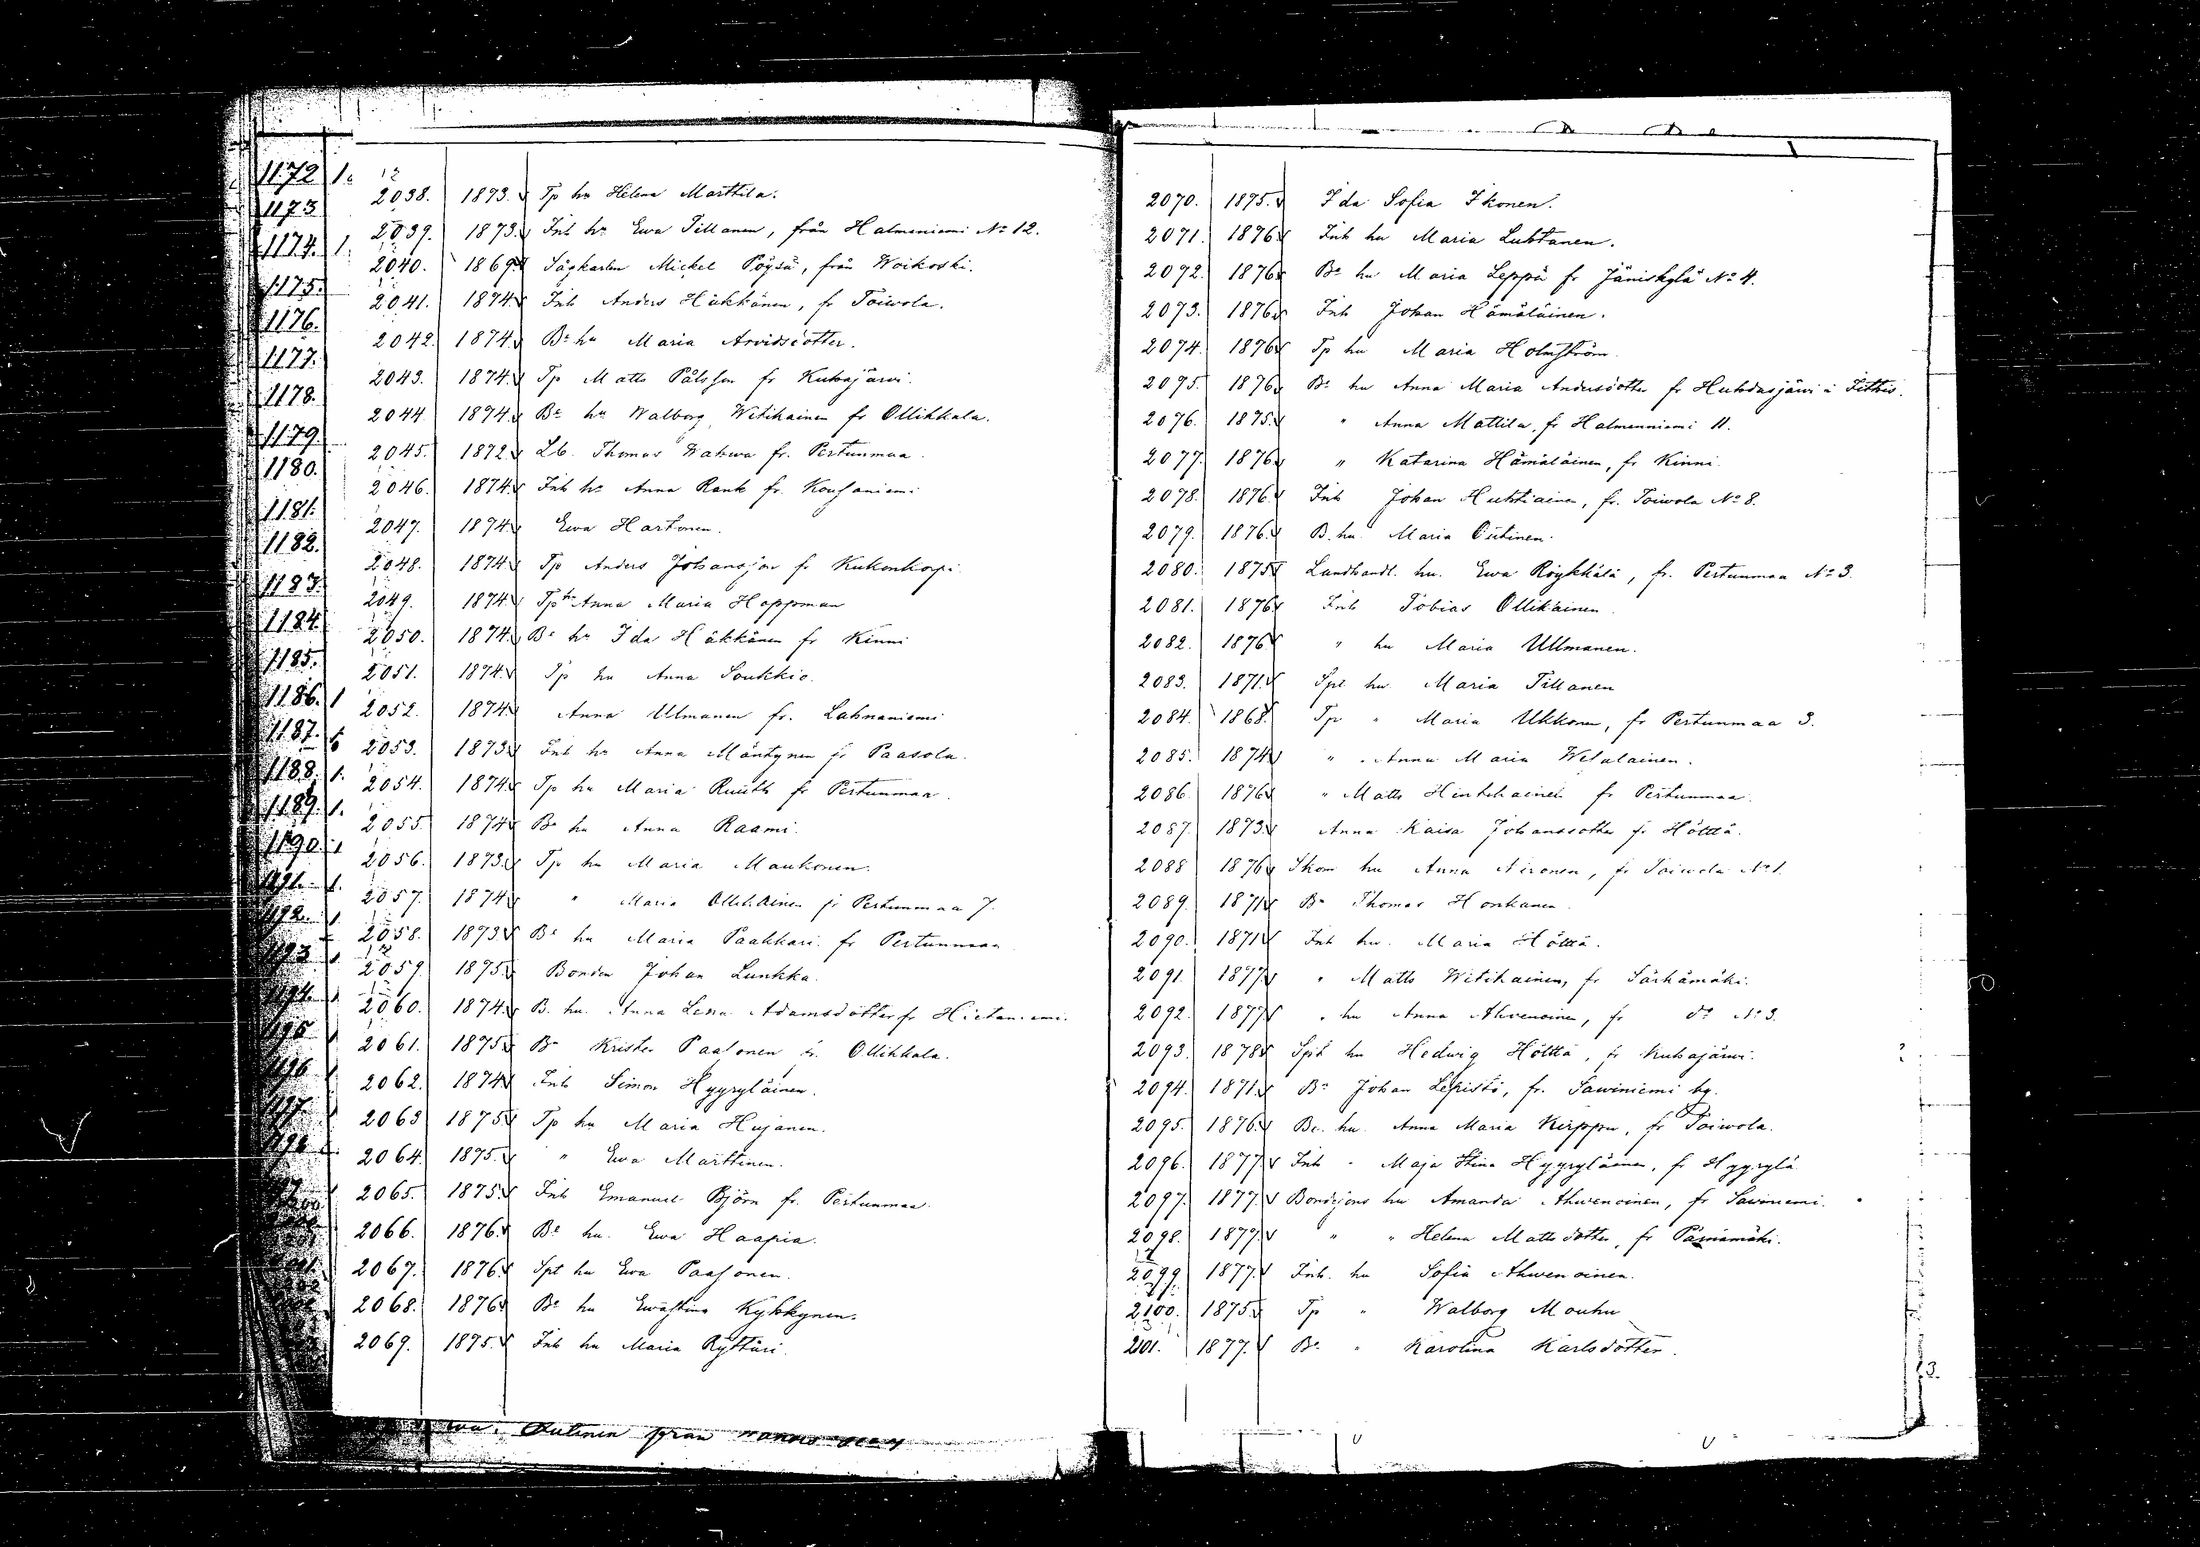 1172 1.
1173
1174. 1.
1175.
1176.
1177.
1178.
1179.
1180.
1181.
1182.
1183.
1184.
1185.
1186. 1
1187.
1188. 1.
1189. 1.
1190. 1
2038. 1873. Tp hu Helena Marttila.
2039. 1873. Inh hu Ewa Tillanen, från Halmeniemi No 12.
2040. 1869. Sågkarlen Mickel Pöysä, från Woikoski.
2041. 1874. Inh Anders Häkkänen, fr Toiwola.
2042. 1874. Be hu Maria Arvidsdotter.
2043. 1874. Tp Matts Pålsson fr Kuhajärwi.
2044. 1874. Be hu Walborg Witikainen fr Ollikkala.
2045. 1872. Lb. Thomas Wahwa fr. Pertunmaa.
2046. 1874. Inh hu Anna Rank fr.
2047. 1874. Ewa Hartonen.
2048. 1874. Tp Anders Johansson fr Kukonkorpi.
2049. 1874. Tp hu Anna Maria Hoppoman
2050. 1874. Be hu Ida Häkkänen fr Kinni
2051. 1874. Tp hu Anna Soukkio.
2052. 1874. Anna Ullmanen fr. Lahnaniemi
2053. 1873. Inh hu Anna Mäntynen fr Paasola.
2054. 1874. Tp hu Maria Ruuth fr Pertunmaa.
2055. 1874. Be hu Anna Raami.
2056. 1873. Tp hu Maria Maukonen.
2057. 1874. " Maria Ollikainen fr Pertunmaa 7.
2058. 1873. Be hu Maria Paakkari fr Pertunmaa
2059. 1875. Bonden Johan Lunkka.
2060. 1874. B. hu. Anna Lena Adamsdotter fr Hietaniemi.
2061. 1875. Be Krister Paasonen fr. Ollikkala.
2062. 1874. Inh Simon Hyyryläinen.
2063 1875. Tp hu Maria Hujanen.
2064. 1875. " Ewa Marttinen.
2065. 1875. Inh Emanuel Björn fr. Pertunmaa.
2066. 1876. Be hu. Ewa Haapia.
2067. 1876. Spt hu Ewa Paasonen.
2068. 1876. Be hu Ewastina Kykkynen.
2069. 1875. Inh hu Maria Ryttäri.
2070. 1875. Ida Sofia Ikonen.
2071. 1876. Inh hu Maria Luhtanen.
2072. 1876. Be hu Maria Leppä fr Jäniskylä No 4.
2073. 1876. Inh Johan Hämäläinen.
2074. 1876. Tp hu Maria Holmström.
2075. 1876. Be hu Anna Maria Andersdotter fr Huhdasjärwi i Jittis.
2076. 1875. " Anna Mattila, fr Halmenniemi 11.
2077. 1876. " Katarina Hämäläinen, fr Kinni.
2078. 1876. Inh Johan Huhtiainen, fr. Toiwola No 8.
2079. 1876. B. hu. Maria Outinen.
2080. 1875. Landhandl. hu. Ewa Röykkälä, fr. Pertunmaa No 3.
2081. 1876. Inh Tobias Ollikainen.
2082. 1876. " hu Maria Ullmanen.
2083. 1871. Spt hu Maria Tillanen
2084. 1868. Tp " Maria Ukkonen, fr Pertunmaa 3.
2085. 1874. " Anna Maria Wetalainen.
2086. 1876. " Matts fr Pertunmaa.
2087. 1873. Anna Kaisa Johansdotter fr Hölttä.
2088 1876. Skom hu Anna Nironen, fr Toiwola No 1.
2089. 1871. Be Thomas Honkanen.
2090. 1871. Inh hu. Maria Hölttä.
2091. 1877. " Matts Witikainen, fr Särkämäki.
2092. 1877. " hu Anna Ahvenoinen, fr do No 3.
2093. 1878. Spt hu Hedwig Hölttä, fr Kuhajärwi.
2094. 1871. Be Johan Lepistö, fr. Sawiniemi by.
2095. 1876. Be. hu. Anna Maria Kirppu, fr Toiwola.
2096. 1877. Inh " Maja Stina Hyyryläinen, fr Hyyrylä
2097. 1877. Bondesons hu Amanda Ahvenoinen, fr Sawiniemi.
2098. 1877. " " Helena Mattsdotter, fr Pärnämäki.
2099. 1877. Inh. hu Sofia Ahwenoinen.
2100. 1875. Tp " Walborg Mouhu
2101. 1877. Be " Karolina Karlsdotter.